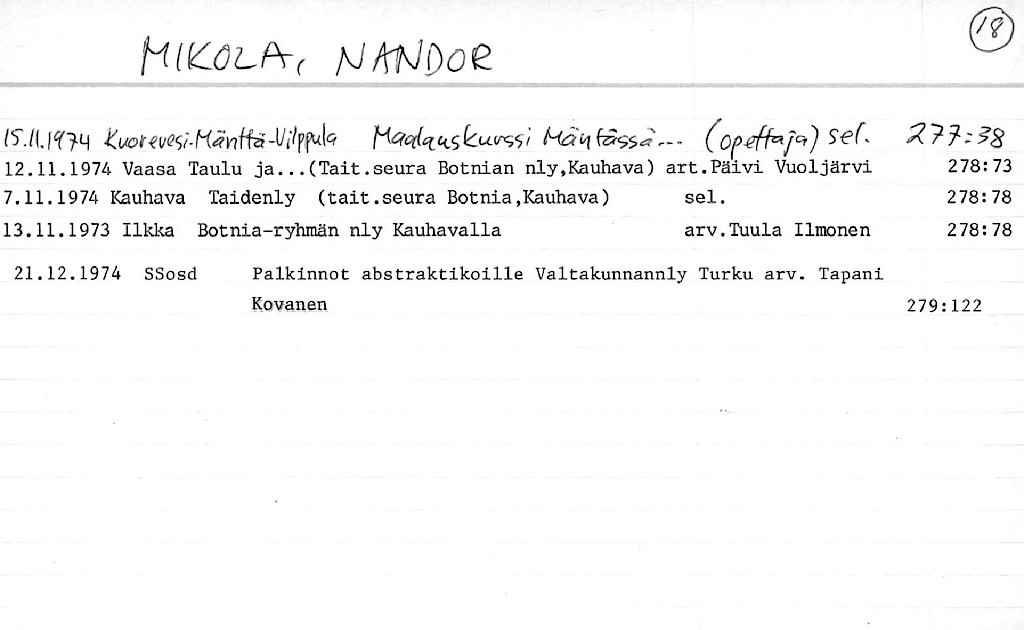 18
MIKOLA, NANDOR
15.11.1974 Kuorevesi-Mänttä-Vilppula Maalauskurssi Mäntässä... (opettaja) sel. 277:38
12.11.1974 Vaasa Taulu ja...(Tait.seura Botnian nly,Kauhava) art.Päivi Vuoljärvi 278:73
7.11.1974 Kauhava Taidenly (tait.seura Botnia,Kauhava) sel. 278:78
13.11.1973 Ilkka Botnia-ryhmän nly Kauhavalla arv.Tuula Ilmonen 278:78
21.12.1974 SSosd Palkinnot abstraktikoille Valtakunnannly Turku arv. Tapani
Kovanen 279:122